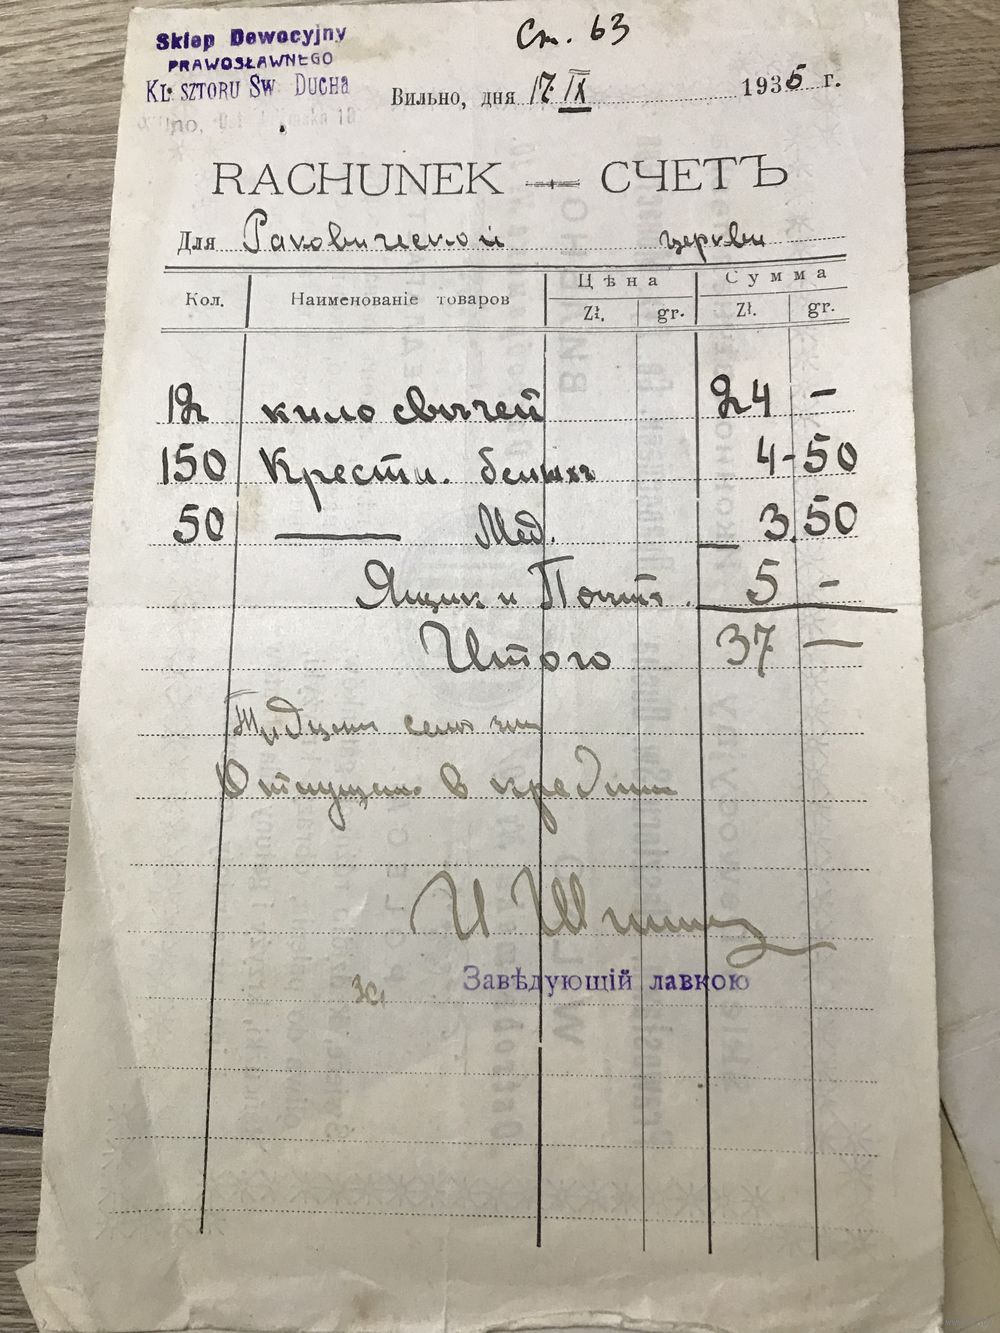 Sklep Dewocyjny
PRAWOSŁAWNEGO
KL SZTORU Św. DUCHA
Ст. 63
Вильно, дня 17 IX 1935 г.
RACHUNEK — СЧЕТЪ
Для Раковической церкви
Кол. Наименованіе товаров Цѣна Сумма
Zł. gr. Zł. gr.
12 кило свѣчей 24 —
150 Крести. белыхъ 4-50
50 —— Мед. 3.50
Ящик и Почт. 5 —
Итого 37 —
Тридцать семь зл.
Отпущено в кредит
Завѣдующій лавкою